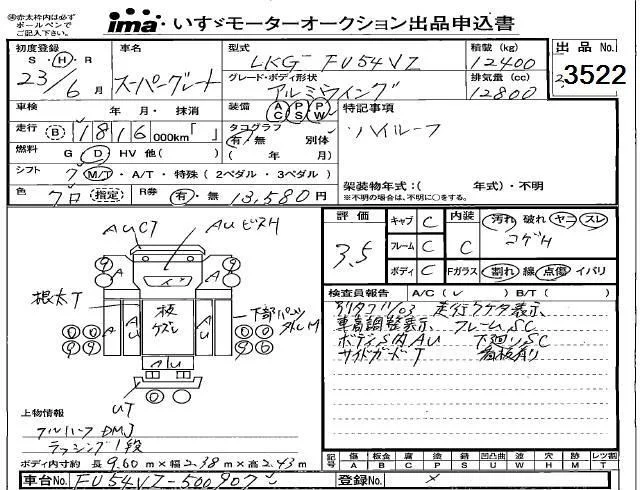 ㊟赤太枠内は必ず
ボールペンで
ご記入下さい。
ima いすゞモーターオークション出品申込書
初度登録 車名 型式 積載 (kg) 出品 No.
S・H・R LKG-FU54VZ 12400
23/6月 スーパーグレート グレード・ボディ形状 排気量 (cc) 3522
アルミウイング 12800
車検 年・月・抹消 装備 AC PS PW 特記事項
走行 B 1816 000km「 」 タコグラフ ハイルーフ
有・無 別体
燃料 G D HV 他( ) ( 年 月)
シフト 7 M/T・A/T・特殊(2ペダル・3ペダル) 架装物年式:( 年式)・不明
※不明の場合は、不明に○をする。
色 クロ 指定 R券 有・無 13,580円
評価 キャブ C 内装 汚れ 破れ ヤニ スレ
3.5 フレーム C C コゲH
ボディ C Fガラス 割れ 線 点傷 イバリ
AUCT AUビスH
根太T
A A
板
ケズレ
AU AU
下部パーツ
外しM
UT
検査員報告 A/C(✓) B/T( )
走行タクタ表示
車高調整表示、フレームSC
ボディS内AU 下廻りSC
サイドガードT 看板有り
上物情報
ラッシング1段
ボディ内寸約 長9.60m×幅2.38m×高2.43m
記号 傷 板金 腐 塗 錆 凹凸曲 凹 穴 跡 マド レツ割
A B C P S U W H M T
車台No. FU54VZ-500907 登録No. ×